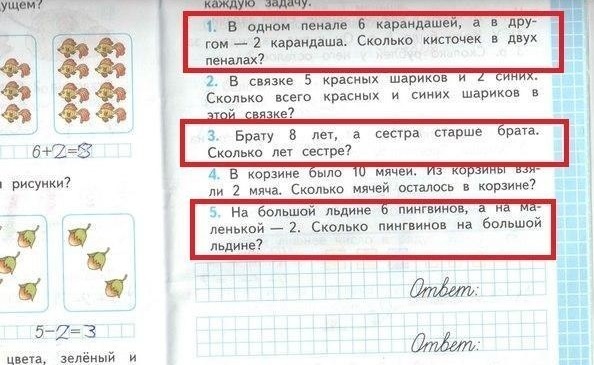 дущем?
6+2=8
и рисунки?
5−2=3
цвета, зелёный и
каждую задачу.
1. В одном пенале 6 карандашей, а в дру-
гом — 2 карандаша. Сколько кисточек в двух
пеналах?
2. В связке 5 красных шариков и 2 синих.
Сколько всего красных и синих шариков в
этой связке?
3. Брату 8 лет, а сестра старше брата.
Сколько лет сестре?
4. В корзине было 10 мячей. Из корзины взя-
ли 2 мяча. Сколько мячей осталось в корзине?
5. На большой льдине 6 пингвинов, а на ма-
ленькой — 2. Сколько пингвинов на большой
льдине?
Ответ:
Ответ: